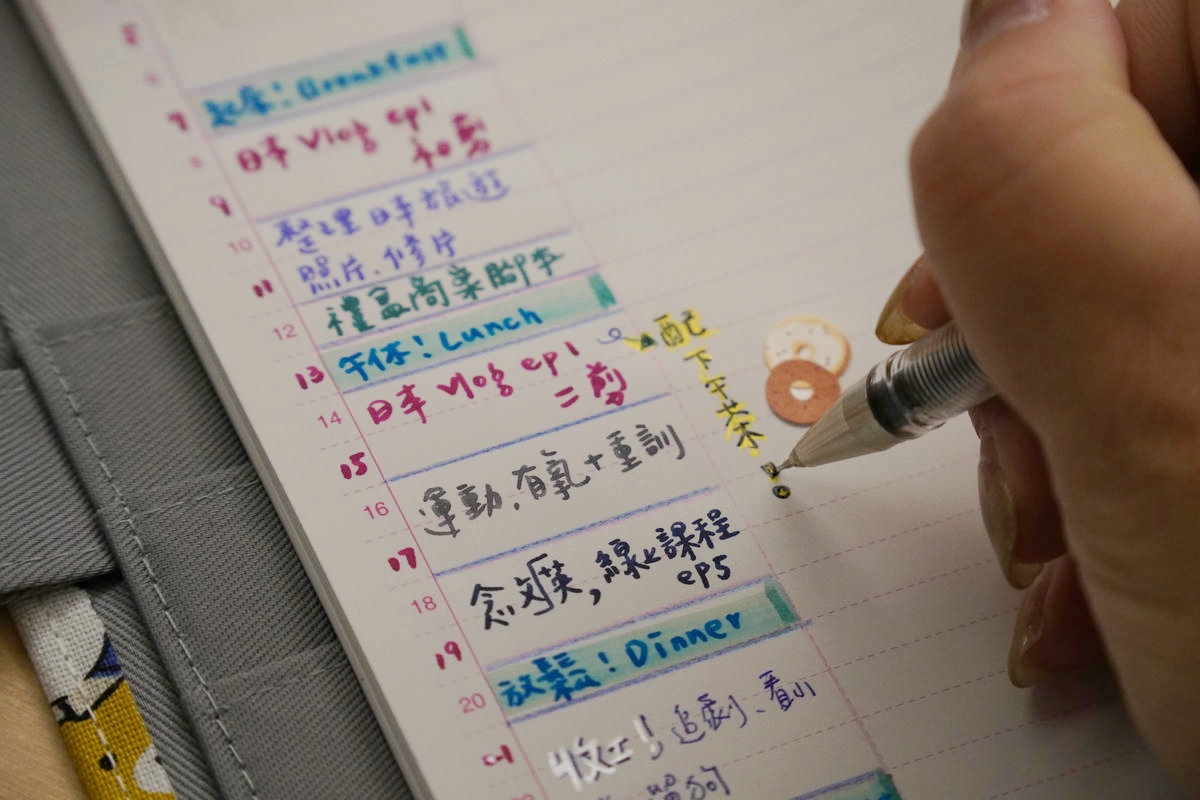 7
起床!Breakfast
日本 Vlog ep1
初剪
9
整理日本旅遊
10
照片、修片
11
禮盒商業腳本
12
午休!Lunch
13
配下午茶!
日本 Vlog ep1
14
二剪
15
運動,有氧+重訓
16
17
念多英,線上課程
18
ep5
19
放鬆!Dinner
20
收工!追劇、看小
21